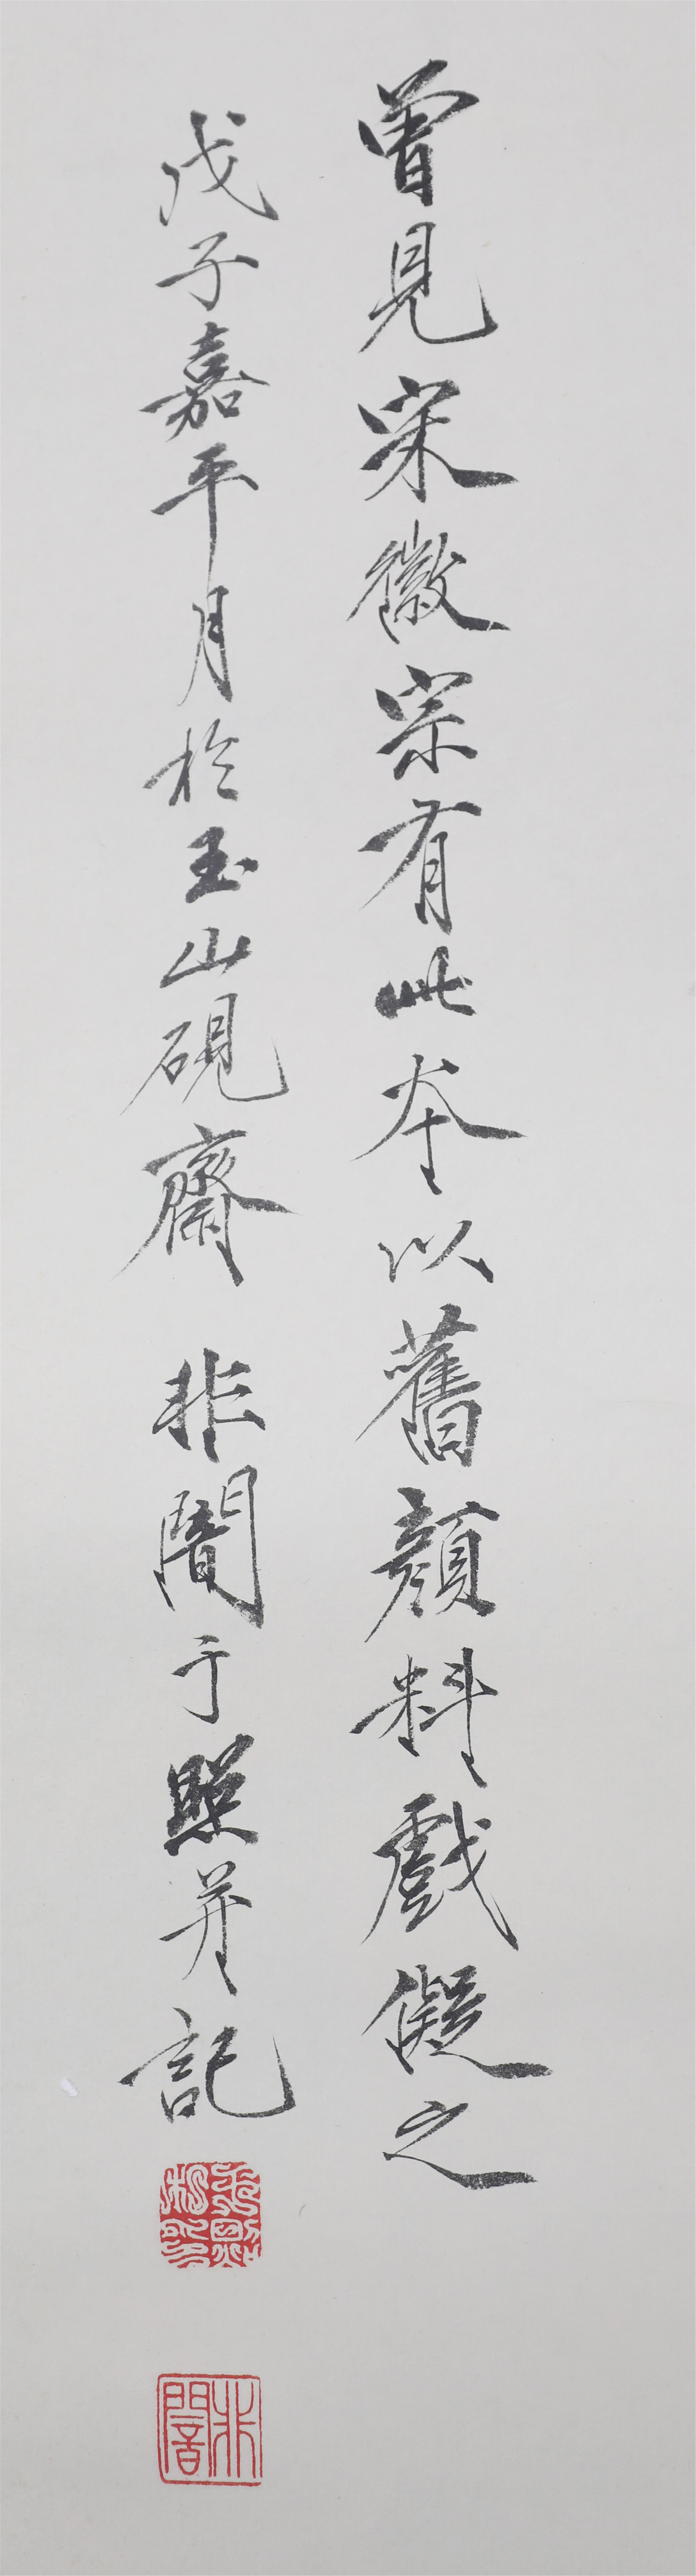 曾見宋徽宗有此本以舊顏料戲儗之
戊子嘉平月於玉山硯齋 非闇于照并記
非闇